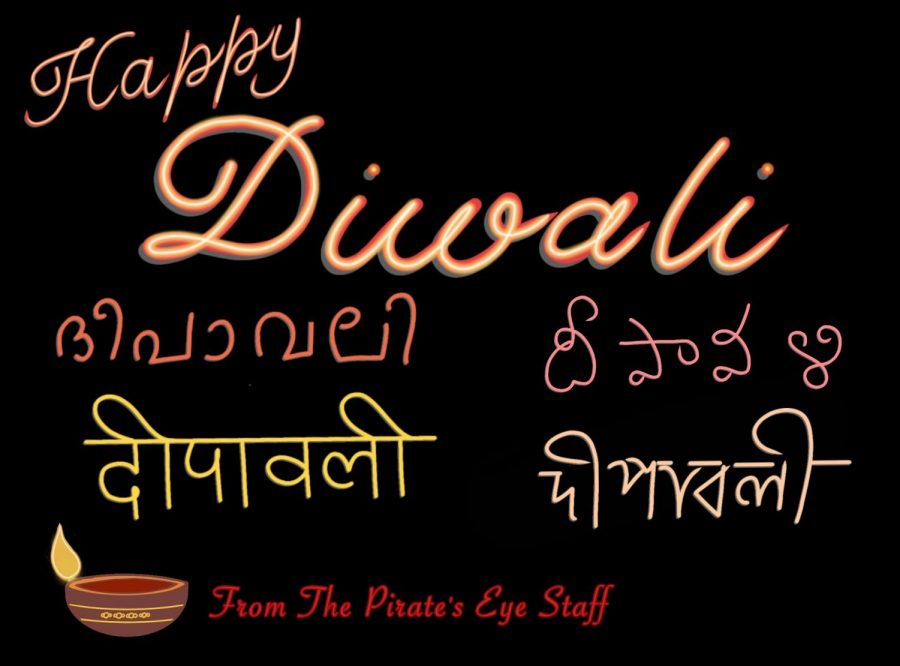 Happy
Diwali
ദീപാവലി
దీపావళి
दीपावली
দীপাবলী
From The Pirate's Eye Staff